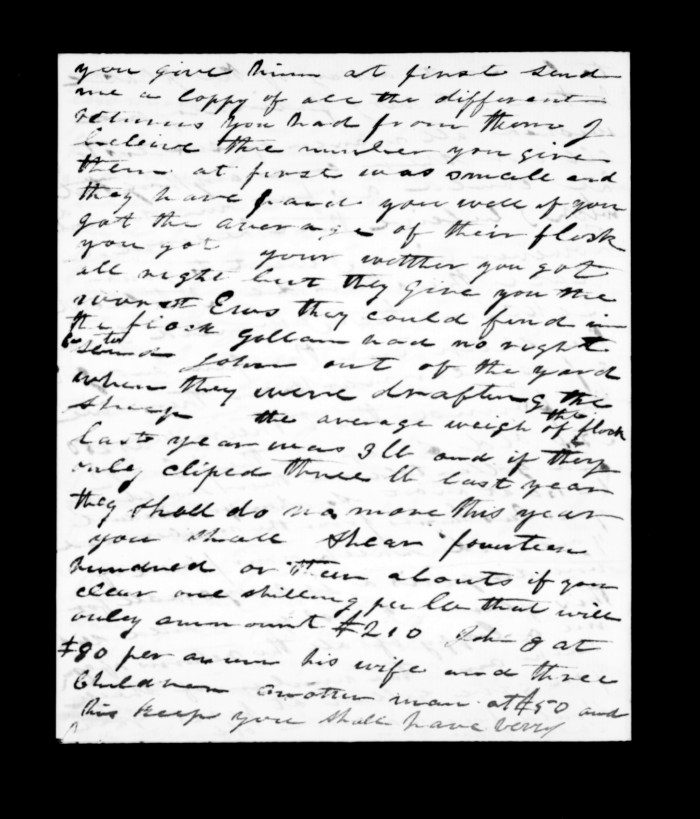 you give him at first send
me a Coppy of all the different
returns you had from them I
beleive the number you give
them at first was small and
they have paid you well if you
got the average of their flock
you got your wether you got
all right but they give you the
worst Ews they could find in
the flock Gollan had no right
to send John out of the yard
when they were drafting the
Sheep the average weigh of the flock
last year was 3 lb and if they
only cliped three lb last year
they shall do no more this year
you shall Shear fourteen
hundred or abouts if you
clear one shilling per lb that will
only ammount £210 John at
£80 per anum his wife and three
Children another man at £50 and
his keeps you shall have verry